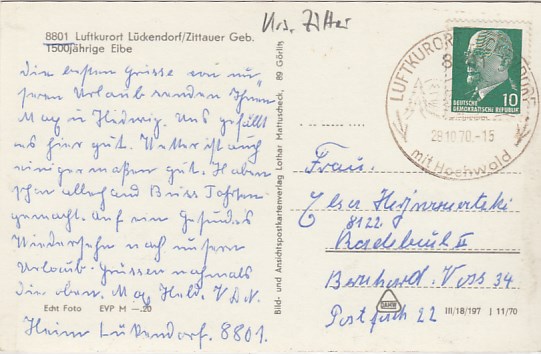 Urs. Zitter
8801 Luftkurort Lückendorf/Zittauer Geb.
1500jährige Eibe
Die besten Grüsse von un
serem Urlaub senden Ihnen
Max u Hedwig. Uns gefällt
es hier gut. Wetter ist auch
einigermaßen gut. Haben
schon allerhand Fahrten
gemacht. Auf ein gesundes
Wiedersehn nach unserem
Urlaub. Grüssen nochmals
die oben. Max Held. VDN.
Heim Lükendorf. 8801.
Echt Foto EVP M —.20
Bild- und Ansichtspostkartenverlag Lothar Mattusbeck, 89 Görlitz
LUFTKURORT
28.10.70.-15
mit Hochwald
DEUTSCHE
DEMOKRATISCHE REPUBLIK
10
Frau.
Elsa
8122
Radebeul II
Bernhard. Voss 34
Postfach 22
III/18/197 J 11/70